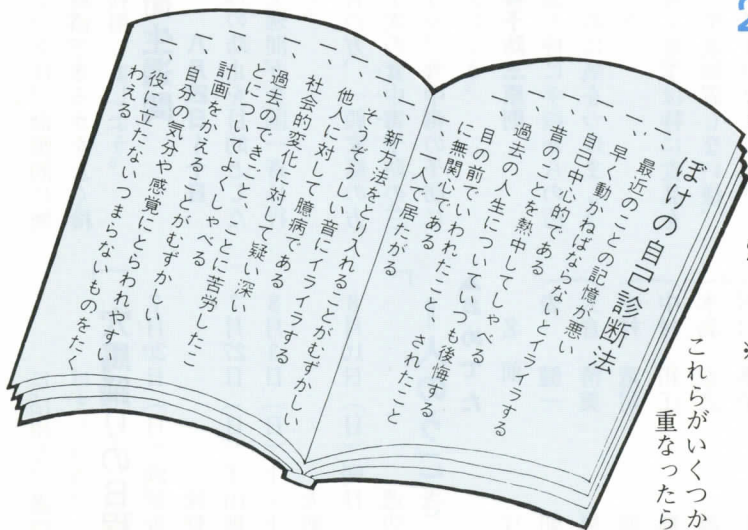 ぼけの自己診断法
一、最近のことの記憶が悪い
一、早く動かねばならないとイライラする
一、自己中心的である
一、昔のことを熱中してしゃべる
一、過去の人生についていつも後悔する
一、目の前でいわれたこと、されたこと
に無関心である
一、一人で居たがる
一、新方法をとり入れることがむずかしい
一、そうぞうしい音にイライラする
一、他人に対して臆病である
一、社会的変化に対して疑い深い
一、過去のできごと、ことに苦労したこ
とについてよくしゃべる
一、計画をかえることがむずかしい
一、自分の気分や感覚にとらわれやすい
一、役に立たないつまらないものをたく
わえる
これらがいくつか
重なったら